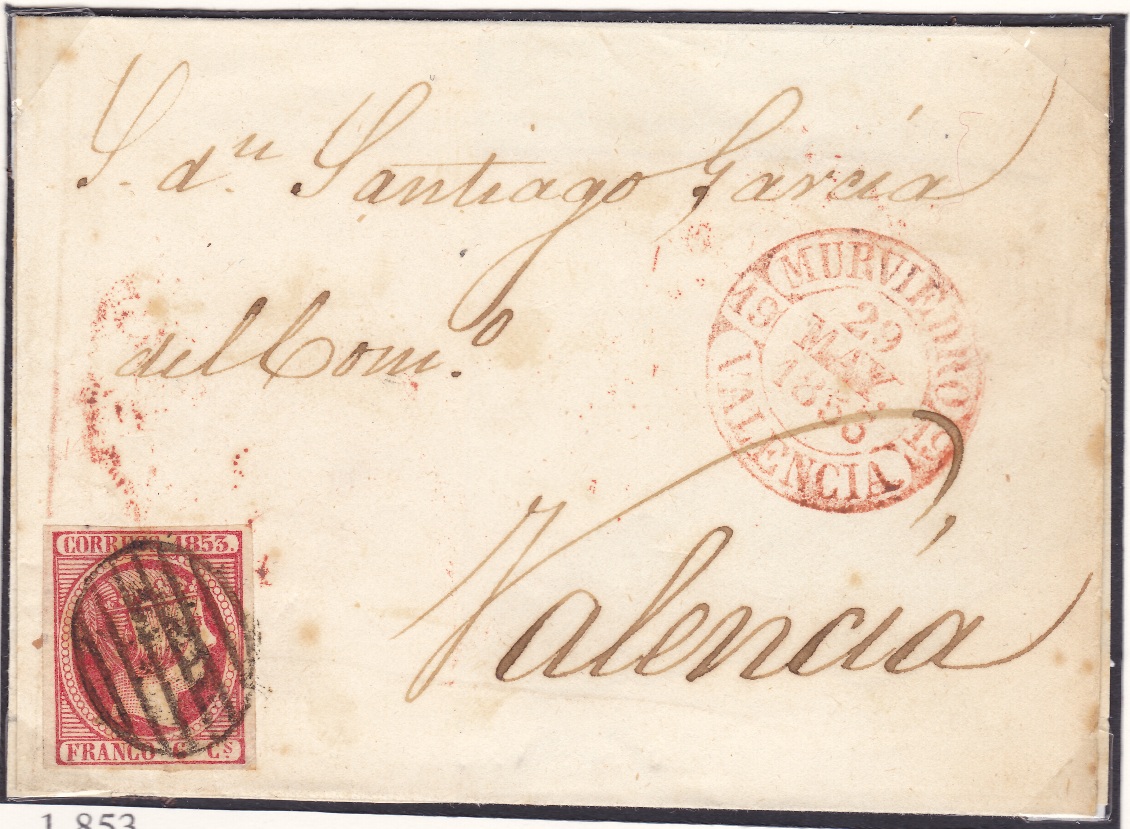 S. dⁿ. Santiago García
del Com.º
Valencia
MURVIEDRO
19 19
29
MAY.
1853
VALENCIA
CORREOS 1853.
FRANCO 6 Cˢ
1.853